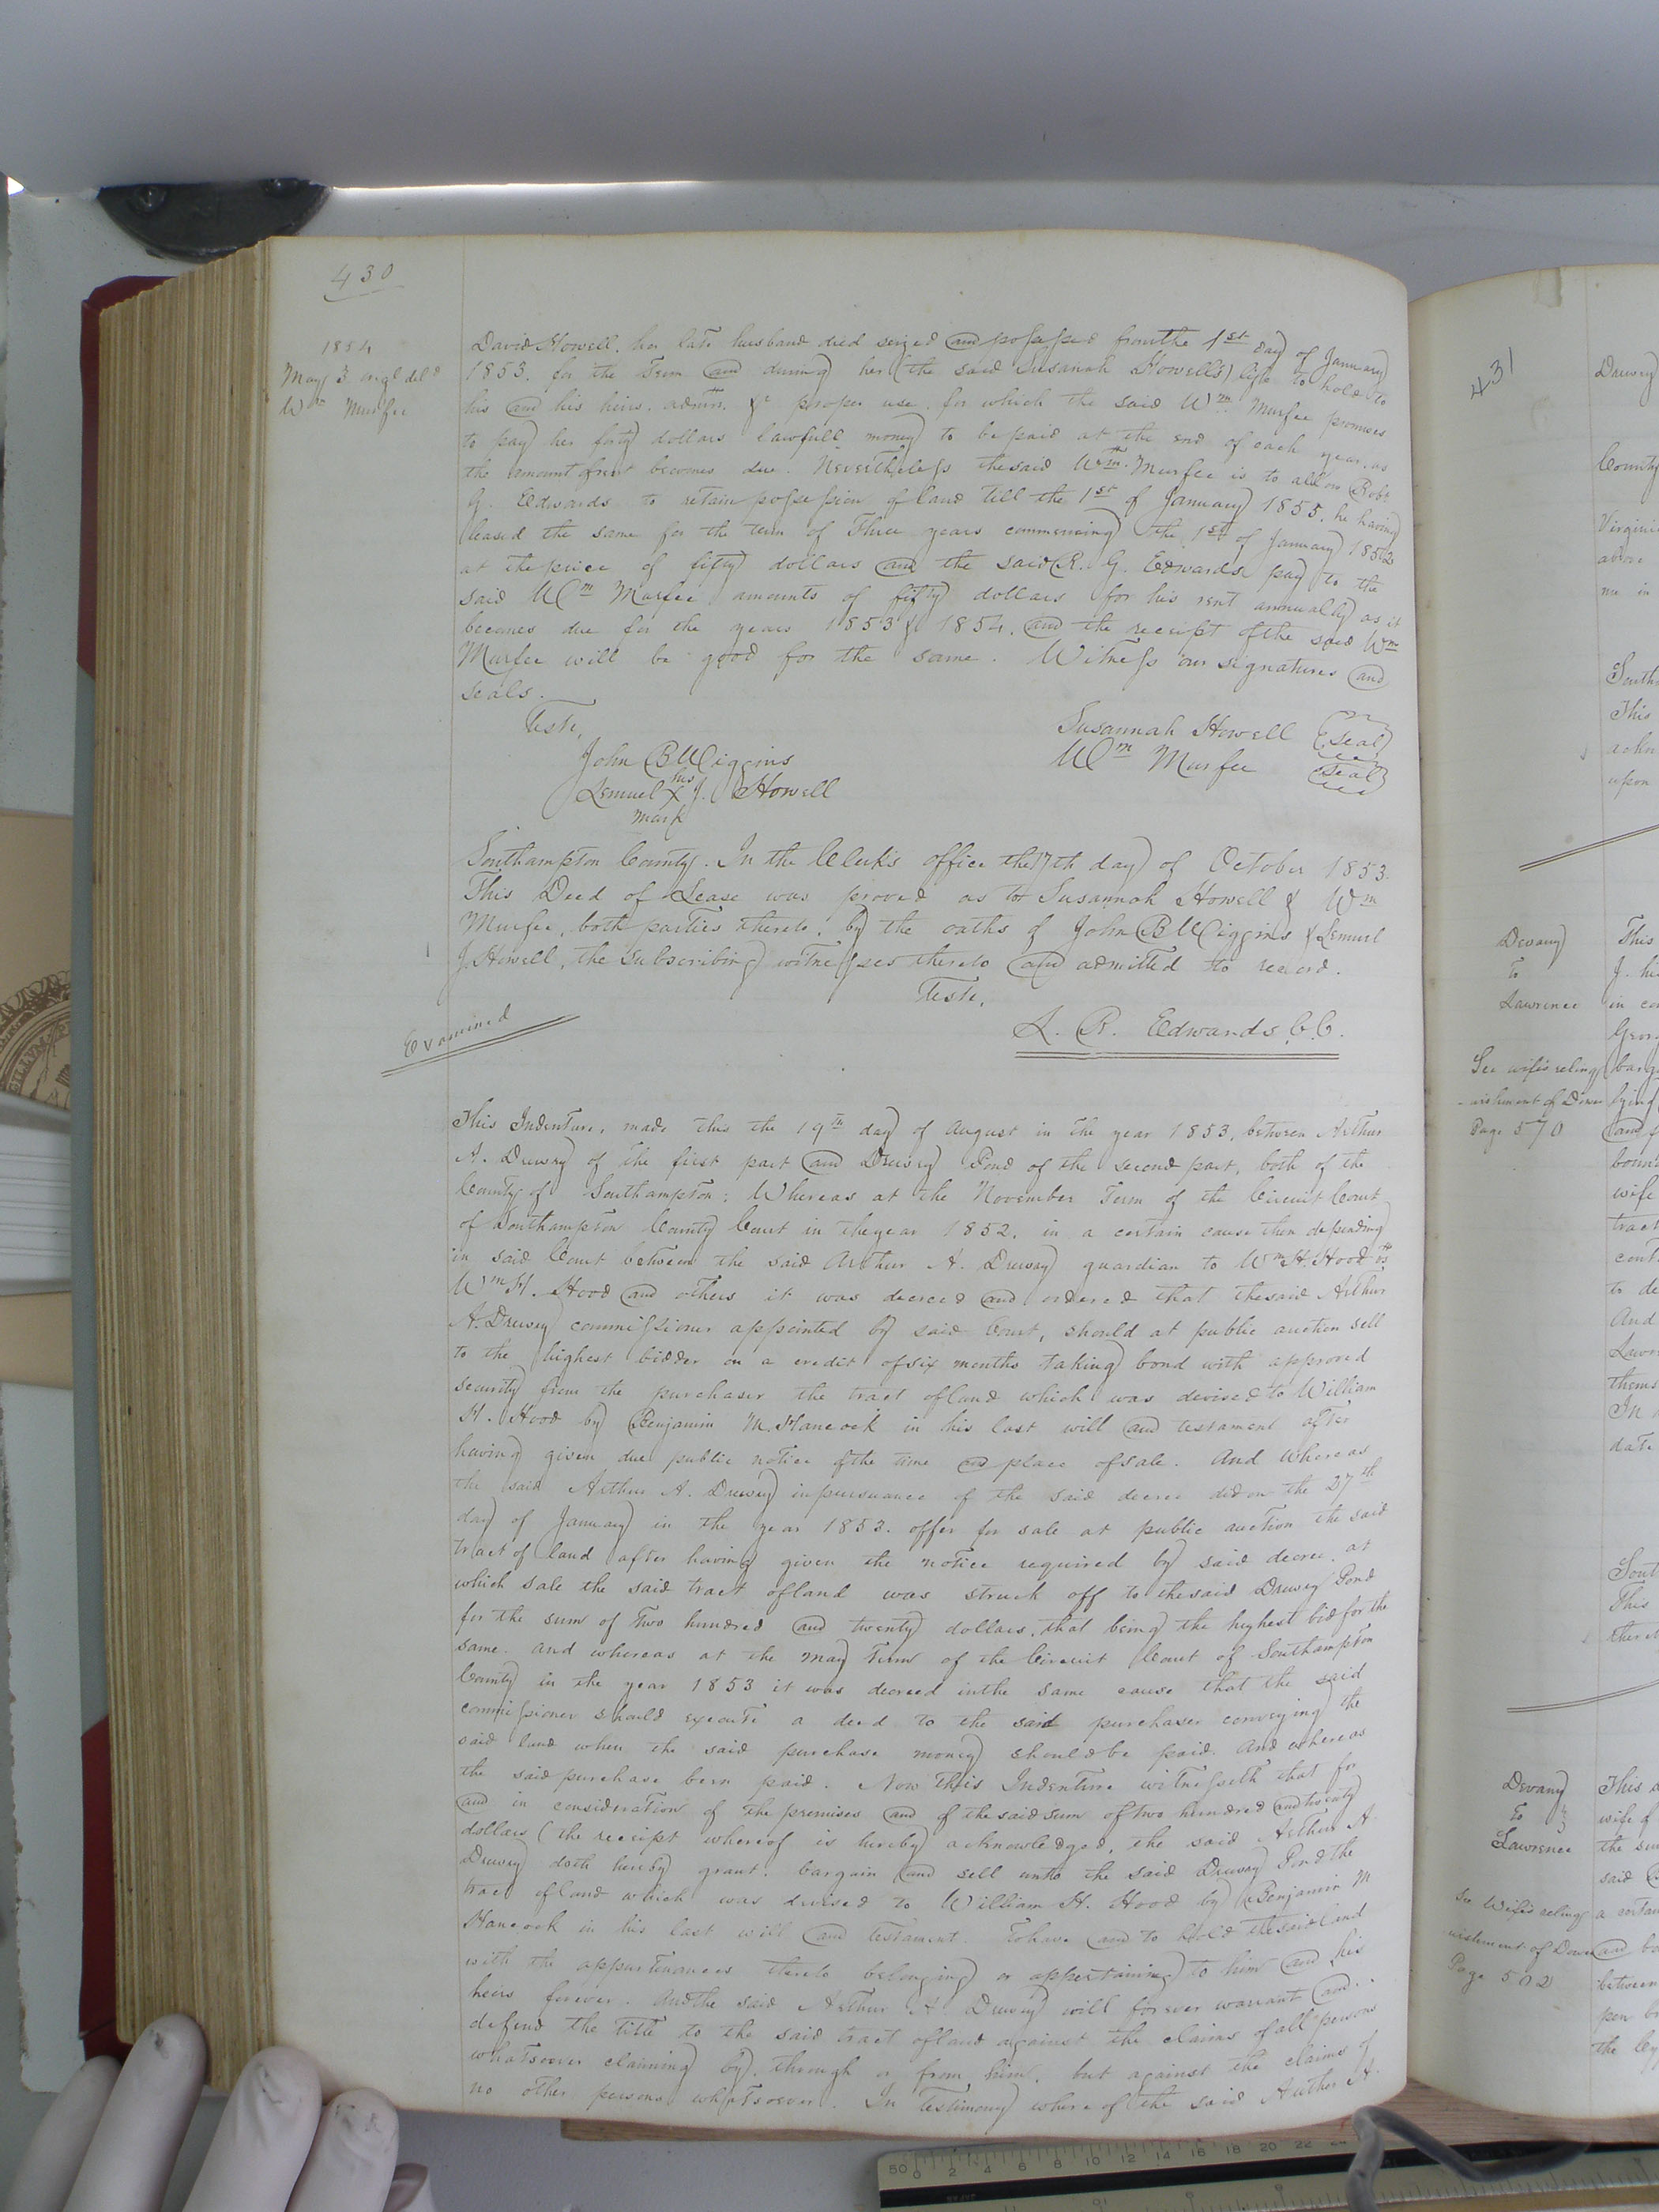 430
1854
May 3 orgl deld
Wm Murfee
David Howell. her late husband died seized and possessed from the 1st day of January
1853. for the Term and during her (the said Susanah Howell's) life to hold to
his and his heirs. admrs. &c proper use. for which the said Wm Murfee promises
to pay her forty dollars lawfull money to be paid at the end of each year. as
the amount of rent becomes due. Nevertheless the said Wm. Murfee is to allow Robt
G. Edwards to retain possession of land till the 1st of January 1855. he having
leased the same for the term of Three years commencing the 1st of January 1852
at the price of fifty dollars and the said R. G. Edwards pay to the
said Wm Murfee amounts of fifty dollars for his rent annually as it
becomes due for the years 1853 & 1854. and the receipt of the said Wm
Murfee will be good for the same. Witness our signatures and
seals.
Teste,
Susannah Howell (Seal)
John B Wiggins
Wm Murfee (Seal)
Lemuel his X mark J. Howell
Southampton County. In the Clerk's office the 17th day of October 1853.
This Deed of Lease was proved as to Susannah Howell & Wm
Murfee, both parties thereto. by the oaths of John B Wiggins & Lemuel
J. Howell, the Subscribing witnesses thereto and admitted to record.
Teste,
Examined
L. R. Edwards C.C.
This Indenture, made this the 19th day of August in the year 1853, between Arthur
A. Drewry of the first part and Drewry Pond of the second part, both of the
County of Southampton; Whereas at the November Term of the Circuit Court
of Southampton County Court in the year 1852. in a certain cause then depending
in said Court between the said Arthur A. Drewry guardian to Wm H. Hood vs
Wm H. Hood and others it was decreed and ordered that the said Arthur
A. Drewry commissioner appointed by said Court, should at public auction sell
to the highest bidder on a credit of six months taking bond with approved
security from the purchaser the tract of land which was devised to William
H. Hood by Benjamin M. Hancock in his last will and testament after
having given due public notice of the time and place of sale. And whereas
the said Arthur A. Drewry in pursuance of the said decree did on the 27th
day of January in the year 1853. offer for sale at public auction the said
tract of land after having given the notice required by said decree. at
which sale the said tract of land was struck off to the said Drewry Pond
for the sum of Two hundred and twenty dollars, that being the highest bid for the
same. and whereas at the May Term of the Circuit Court of Southampton
County in the year 1853 it was decreed in the same cause that the said
commissioner should execute a deed to the said purchaser conveying the
said land when the said purchase money should be paid. And whereas
the said purchase been paid. Now this Indenture witnesseth that for
and in consideration of the premises and of the said sum of two hundred and twenty
dollars (the receipt whereof is hereby acknowledged, the said Arthur A
Drewry doth hereby grant. bargain and sell unto the said Drewry Pond the
tract of land which was devised to William H. Hood by Benjamin M
Hancock in his last will and testament. To have and to Hold the said land
with the appurtenances thereto belonging or appertaining to him and his
heirs forever. And the said Arthur A. Drewry will forever warrant and
defend the title to the said tract of land against the claims of all persons
whatsoever claiming by, through or from him, but against the claims of
no other persons whatsoever. In Testimony whereof the said Arthur A.
431
Drewry
County
Virginia
above
me in
South
This
upon
Devany
to
Lawrence
See wife's relinq
-uishment of Dower
Page 570
This
J. he
in co
Geor
barg
lying
and
bound
wife
tract
cont
to de
And
Lawr
thems
In
date
Sout
This
there
Devany
to
Lawrence
See Wife's relinq
uishment of Dower
Page 502
This
wife of
the su
said
a certain
and bo
between
pen br
the
50 0 2 4 6 8 10 12 14 16 18 20 22 24